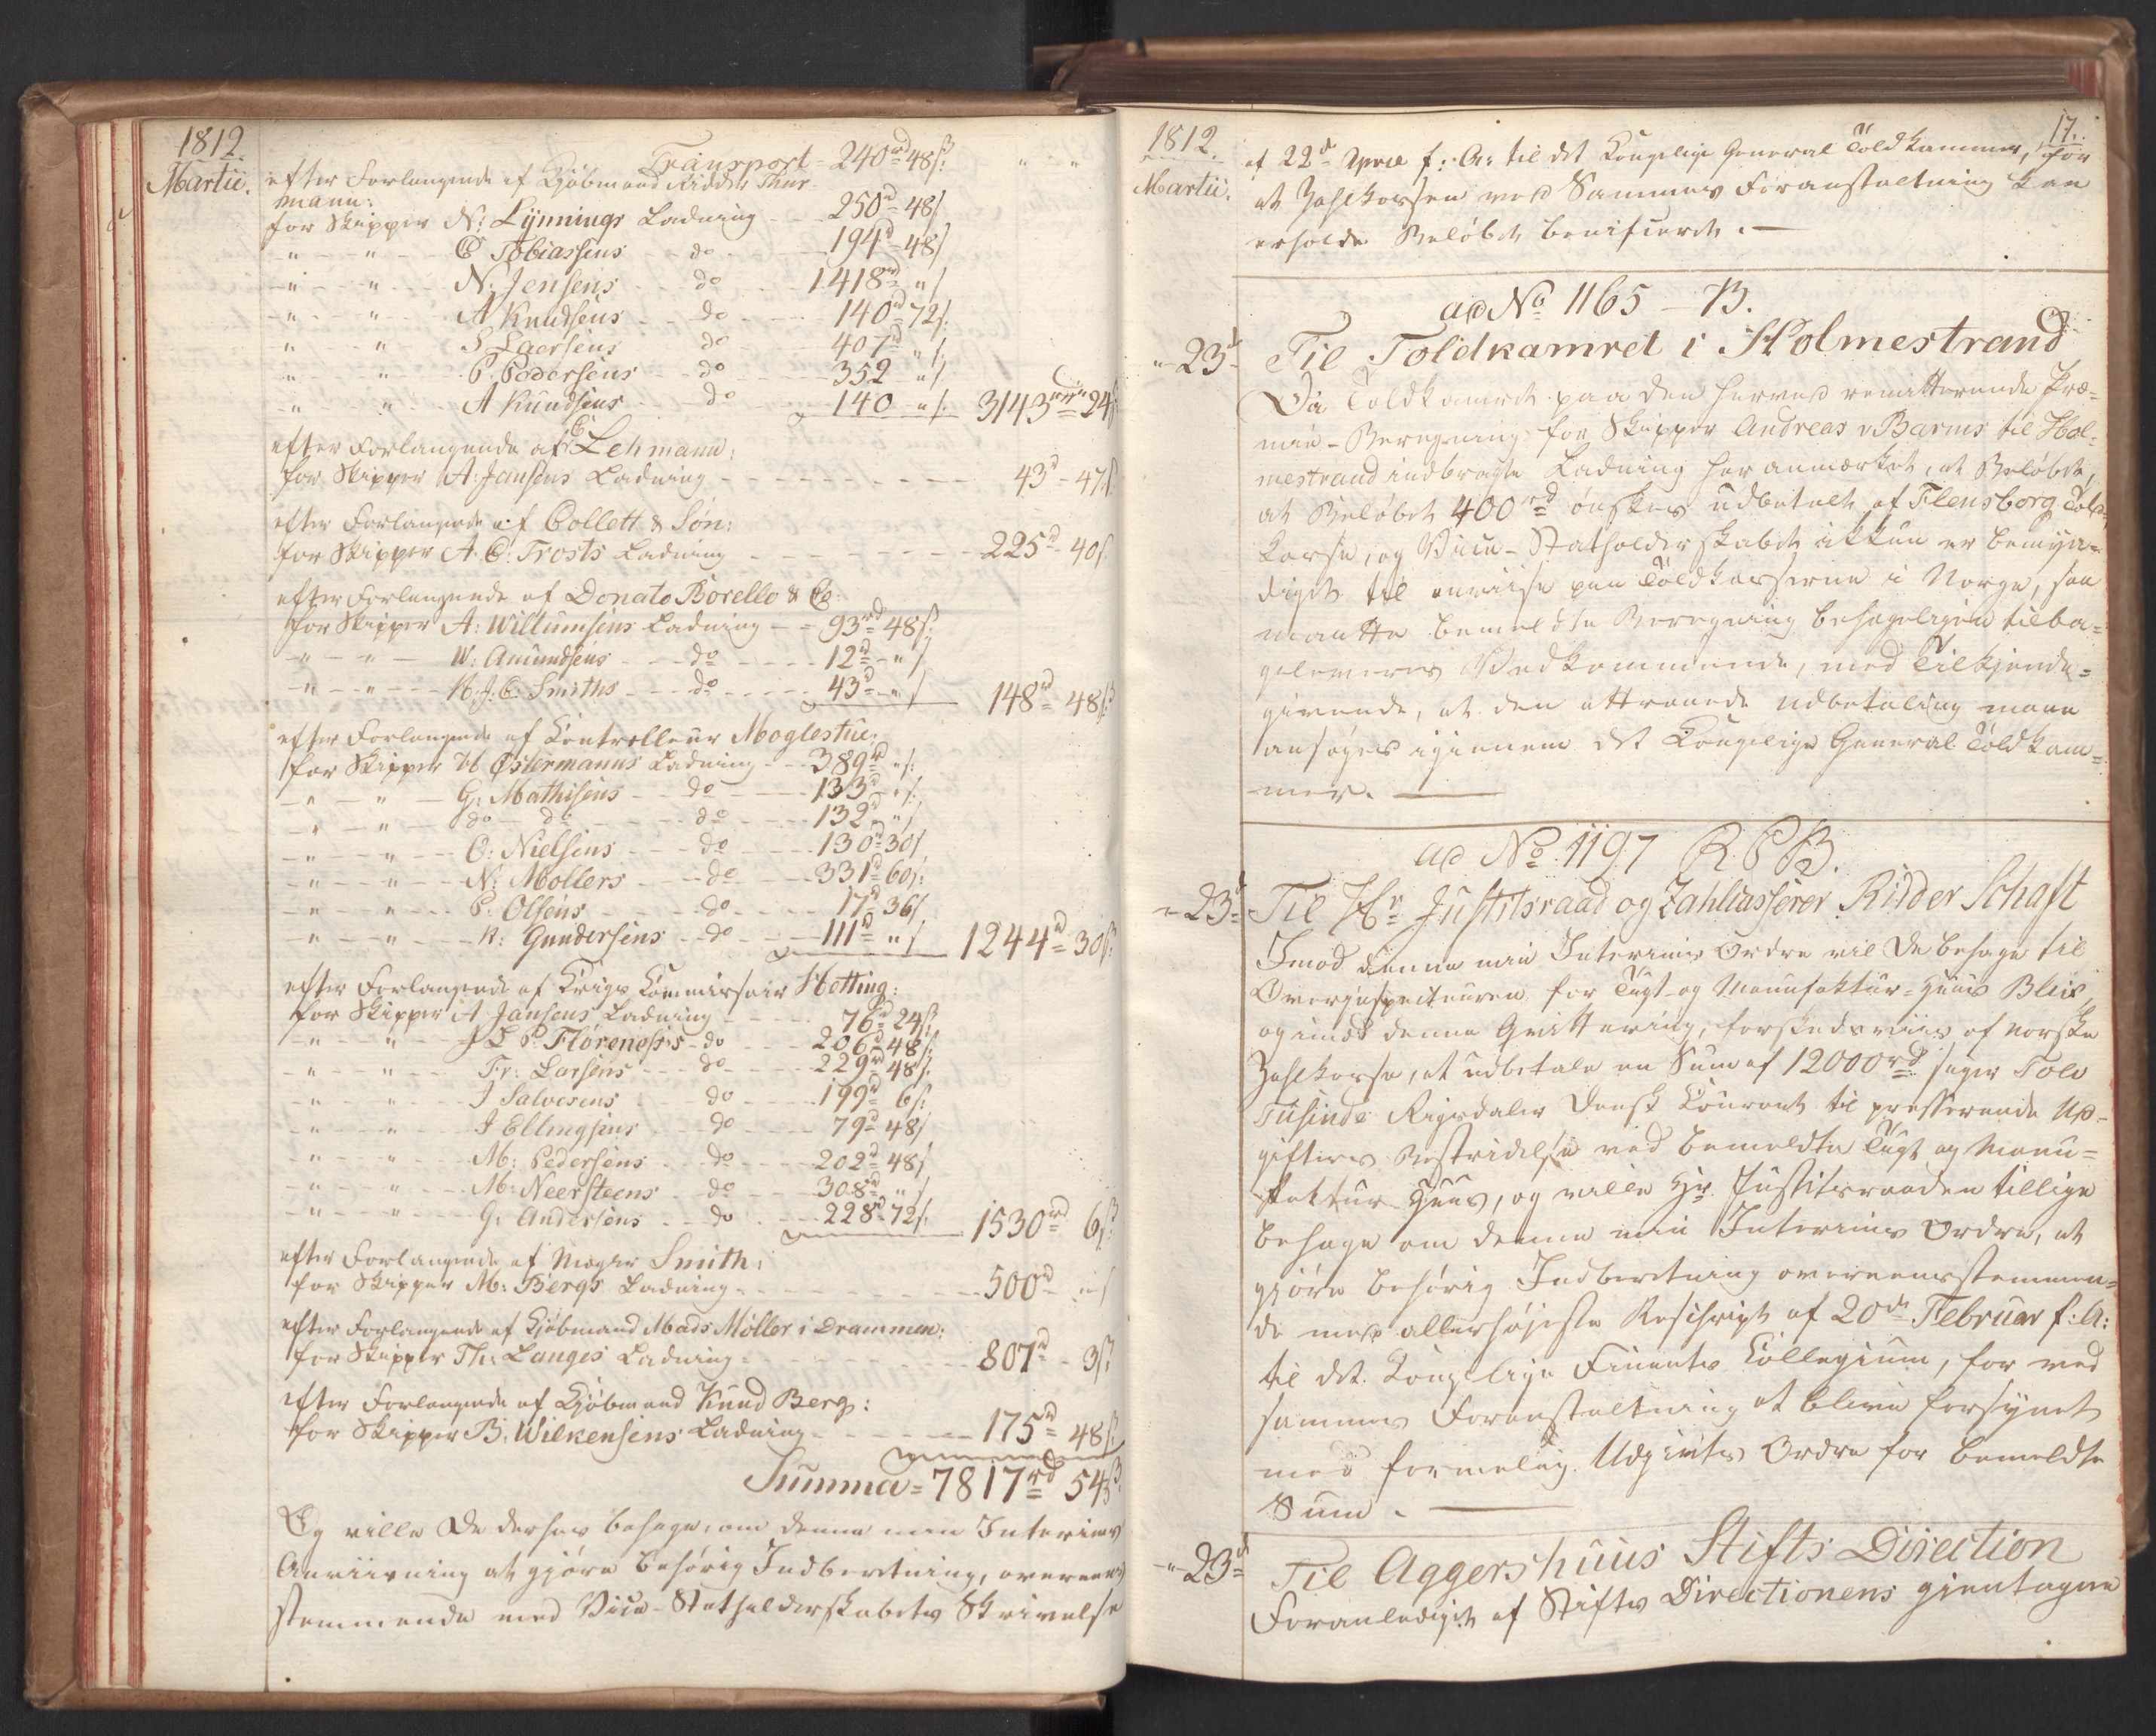 1812.
Martii.
Transport - 240rd 48ß:
efter Forlangende af Kjøbmand Ridder Thur-
mann:
for Skipper N: Lynnings Ladning - - 250rd 48ß
- " - " - C Tobiassens - do - 194rd 48ß
- " - " - N: Jensens - do - 1418rd " ß
- " - " - A Knudsens - do - 140rd 72ß.
- " - " - S Laersens do - 407rd " ß
- " - " - P. Pedersens - do - 352 - " ß
- " - " - A Knudsens - do - 140 " ß. 3143rd 24ß
efter Forlangende af C Lehmann:
for Skipper A: Jansens Ladning - - - - 43rd - 47ß
efter Forlangende af Collett & Søn:
for Skipper A. C: Trosts Ladning - - - - 225rd - 40ß.
efter Forlangende af Donato Borello & Co:
for Skipper A: Willumsens Ladning - - 93rd 48ß:
- " - " - W: Amundsens - do - 12rd - " ß
- " - " - N. J. C: Smiths - do - 43rd - " ß 148rd - 48ß
efter Forlangende af Controlleur Moglestue:
for Skipper H Østermanns Ladning - - 389rd " ß:
- " - " - G: Mathisens - do - 133rd - " ß
- " - " - do - do - do - 132rd " ß
- " - " - O: Nielsens - do - 130rd 30ß
- " - " - N: Mollers - do - 331rd 60ß:
- " - " - P. Olsens - do - 17rd 36ß
- " - " - K: Gundersens - do - 111rd " ß 1244rd - 30ß
efter Forlangende af Krigs Commissair Hetting:
for Skipper A Jansens Ladning - - 76rd 24ß:
- " - " - J S P. Florenessis - do - 206rd 48ß:
- " - " - Fr: Larsens - do - 229rd 48ß:
- " - " - J Salvesens - do - 199rd 6ß:
- " - " - J Ellingsens - do - 79rd 48ß
- " - " - M: Pedersens - do - 202rd 48ß
- " - " - M: Neersteens - do - 308rd " ß
- " - " - G: Andersens - do - 228rd 72ß: 1530rd 6ß
efter Forlangende af Mægler Smith:
for Skipper M: Bergs Ladning - - - - 500rd - " ß
efter Forlangende af Kjøbmand Mads Møller i Drammen:
for Skipper Th: Langes Ladning - - - - 807rd - 3ß
efter Forlangende af Kjøbmand Knud Berg:
for Skipper B: Wilkensens Ladning - - - - 175rd 48ß
Summa = 7817rd 54ß
Og ville De derhos behage, om denne min Interims
Anviisning at gjøre behørig Indberetning, overeens
stemmende med Vice-Statholderskabets Skrivelse
1812.
Martii.
17.
af 22de April f: A: til det Kongelige General Toldkammer, for
at Zahlkassen ved Sammes Foranstaltning kan
erholde Beløbet beneficeret. —
ad No 1165 - B.
" 23de Til Toldkamret i Holmestrand
Da Toldkamret paa den herved remitterende Præ-
mie-Beregning for Skipper Andreas v Barms til Hol-
mestrand indbragte Ladning har anmærket, at Beløbet,
at Beløbet 400rd ønskes udbetalt af Flensborg Told-
kasse, og Vice-Statholderskabet ikkun er bemyn-
diget til anviise paa Toldkasserne i Norge, saa
maatte bemeldte Beregning behageligen tilba-
geleveres Vedkommende, med Tilkjende-
givende, at den attraaede Udbetaling maae
ansøges igiennem det Kongelige General Toldkam-
mer. —
ad No 1197 R P B.
" 23de Til Hr Justitsraad og Zahlcasserer Ridder Schaft
Imod denne min Interims Ordre vil De behage til
Overinspecteuren for Tugt- og Manufaktur-Huus Blix,
og imod denne Qvittering, forskudsviis af norske
Zahlkasse, at udbetale en Sum af 12000rd siger Tolv
Tusinde Rigsdaler Dansk Courant til presserende Ud-
gifters Bestridelse ved bemeldte Tugt og Manu-
faktur-Huus, og ville Hr. Justitsraaden tillige
behage om denne min Interims Ordre, at
gjøre behørig Indberetning overeensstemmen-
de med allerhøjeste Rescript af 20de Februar f: A:
til det Kongelige Finants Collegium, for ved
sammes Foranstaltning at blive forsynet
med formelig Udgivts Ordre for bemeldte
Sum. —
" 23de Til Aggershuus Stifts Direction
Foranlediget af Stifts Directionens gientagne